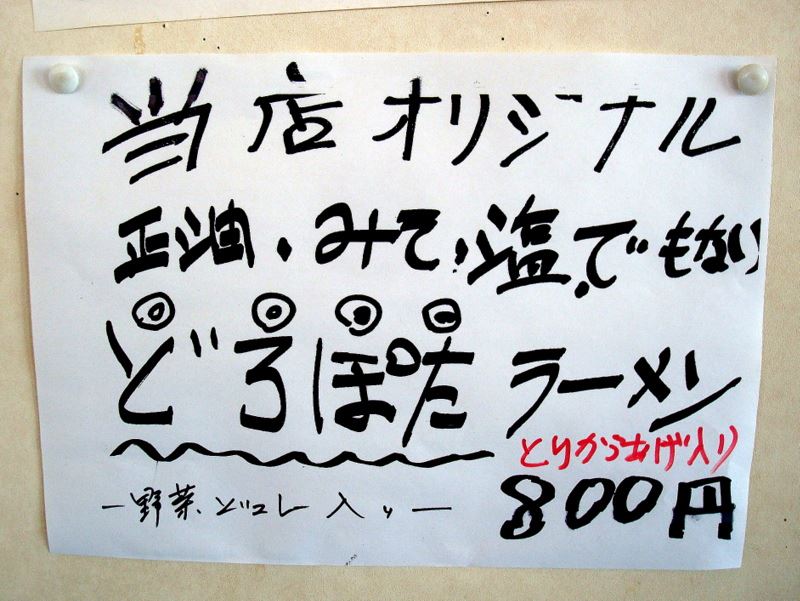 当店オリジナル
正油・みそ・塩・でもない
どろぽたラーメン
とりからあげ入り
800円
ー野菜、どっコレ入りー